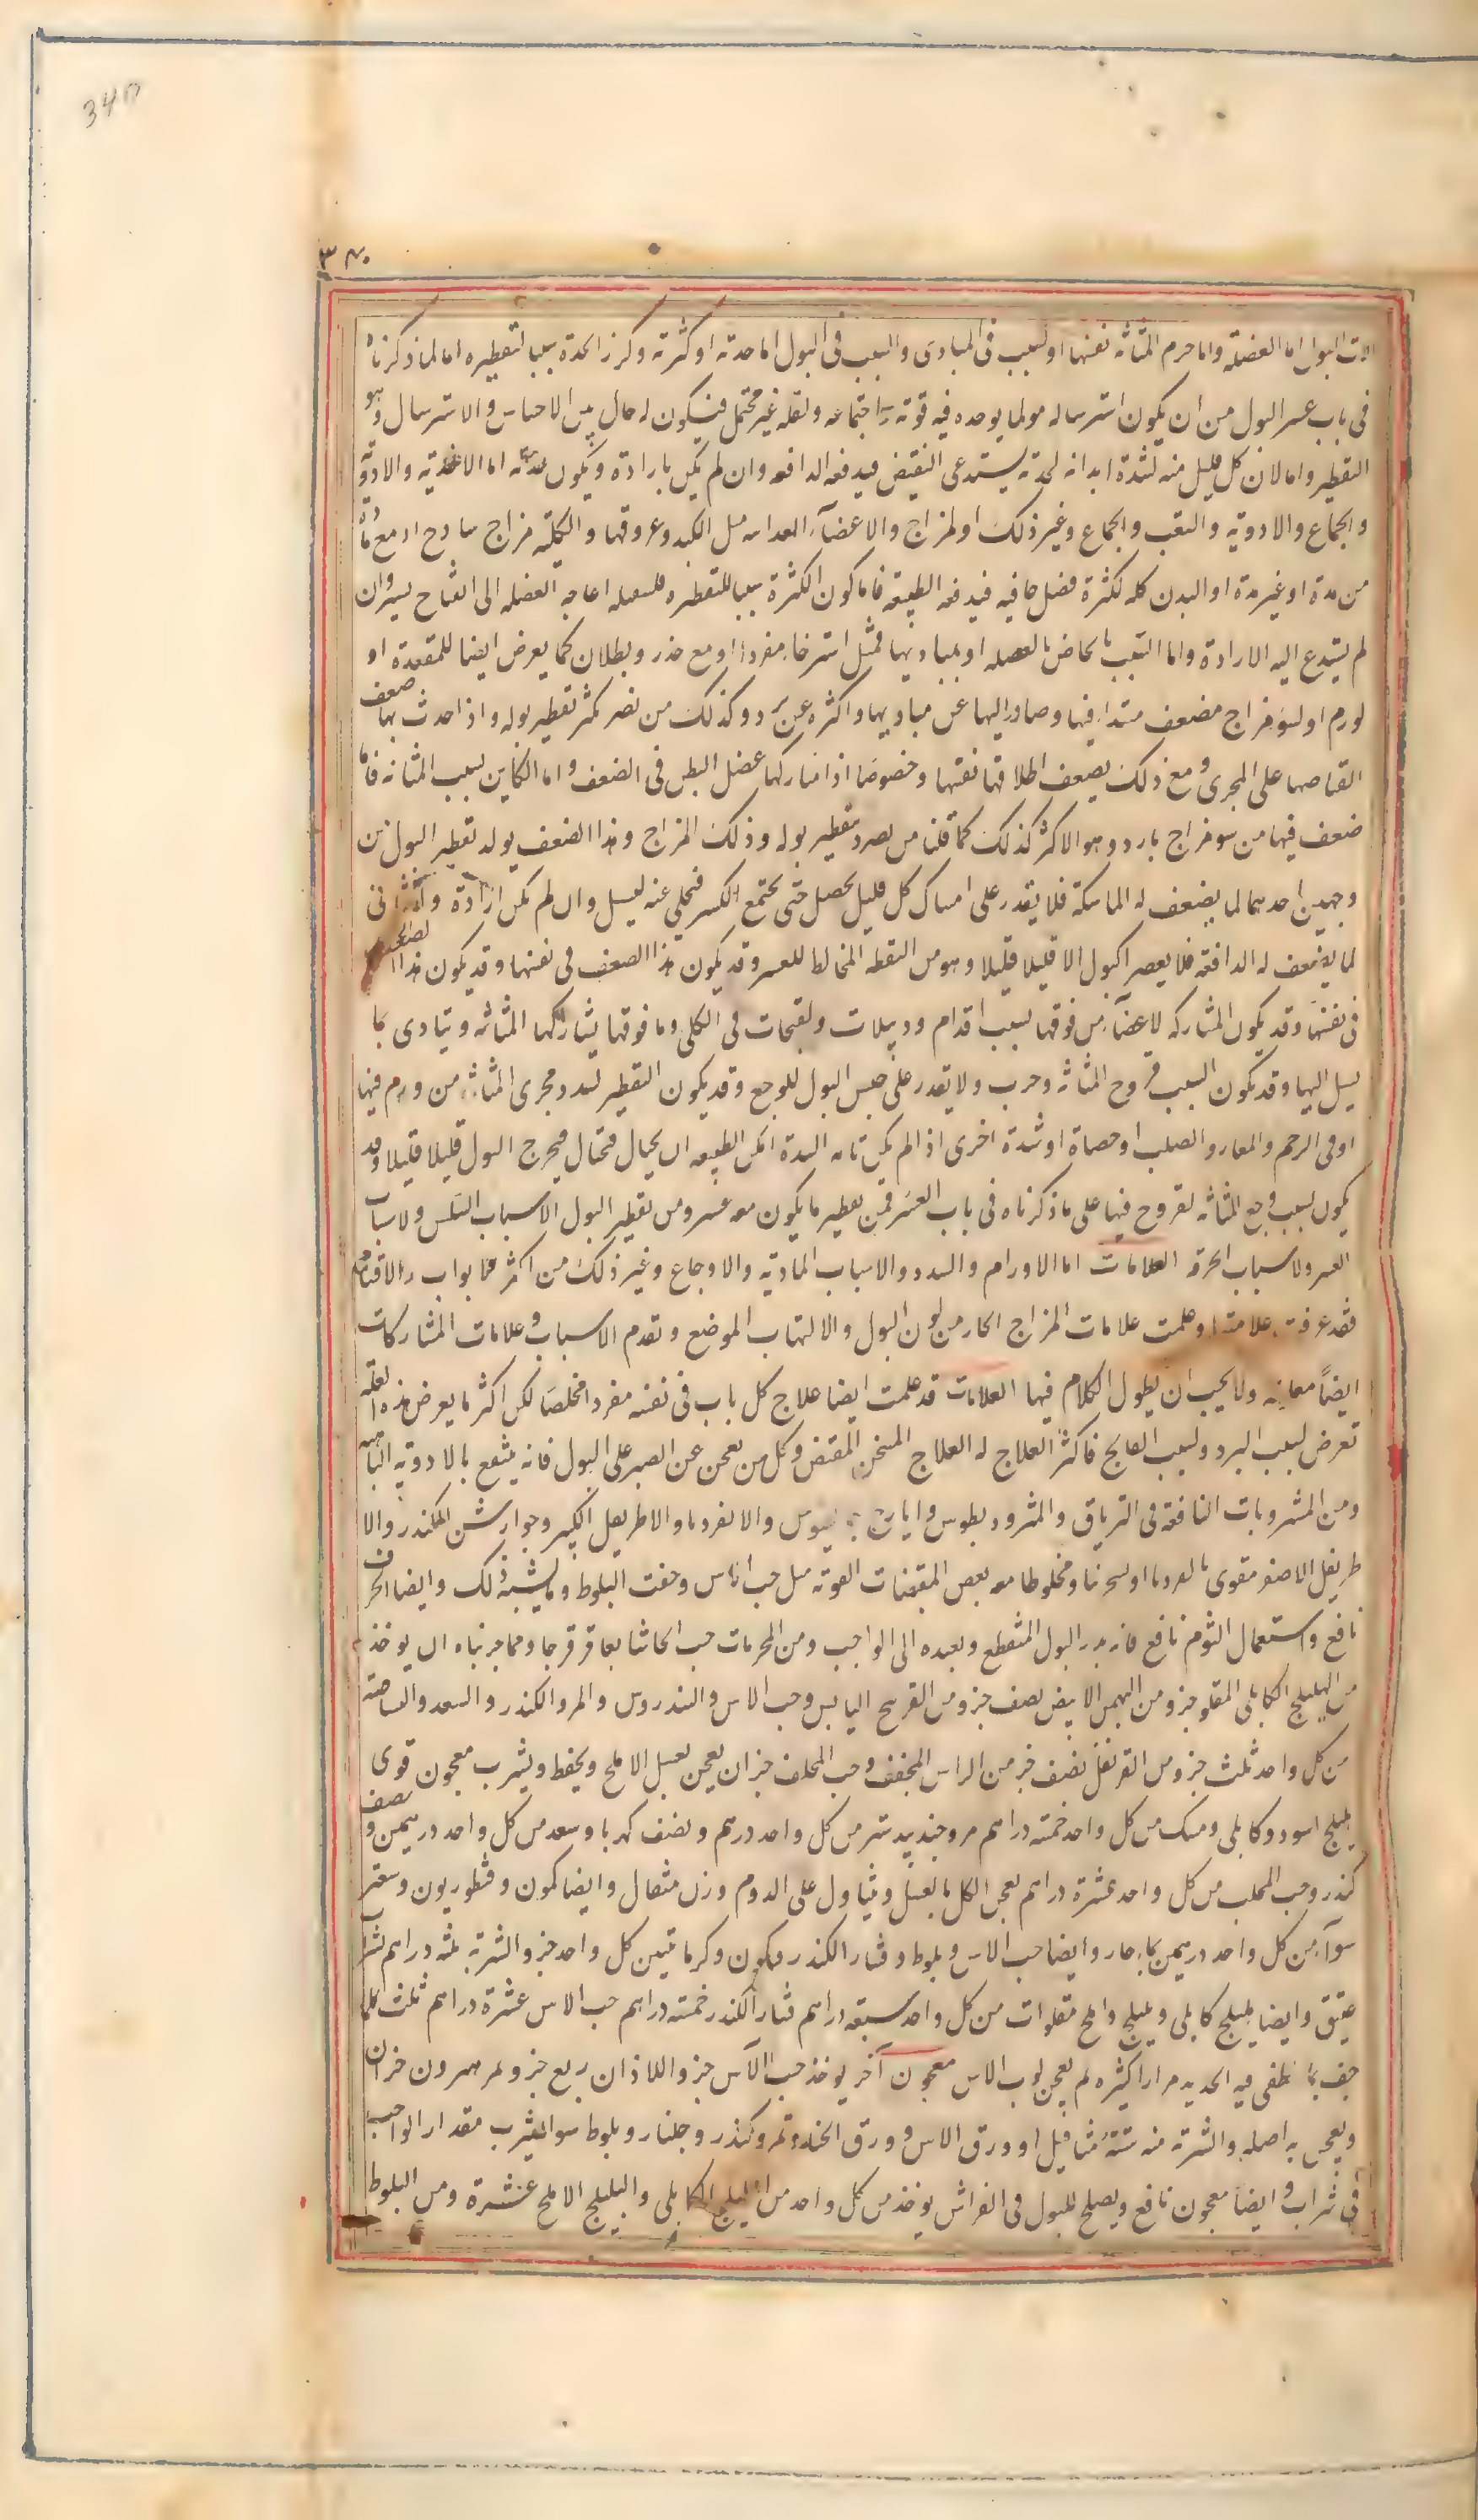 340
٣٤٠
الات البول اما العضلة واما جرم المثانة نفسها او لسبب فى المبادى والسبب فى البول اما حدته او كثرته وكرز الحدة سببا لتقطيره اما لما ذكرناه
فى باب عسر البول من ان يكون استرساله مولما يوحده فيه قوته اجتماعه ولقله غير محتمل فيكون له حال بين الاحباس والاسترسال وهو
التقطير واما لان كل قليل منه لشدة ايذائه لحدته يستدعى النفض فيدفعه الدافعه وان لم يكن بارادة ويكون حدته اما الاغذية والادوية
والجماع والادوية والتعب والجماع وغير ذلك او لمزاج والاعضاء مثل الكبد وعروقها والكلية مزاج ساذج او مع مادة
من مدة او غير مدة او البدن كله لكثرة فضل حا فيه فيدفعه الطبيعه فاما كون الكثرة سببا للتقطير فلثقله اعاجه العضله الى انفتاح يسير وان
لم يستدع اليه الارادة واما السبب الخاص بالعضله او بمباديها فمثل استرخاء مفردا او مع خدر وبطلان كما يعرض ايضا للمقعدة او
لورم او لسو مزاج مضعف مبتداء فيها وصادر اليها عن مباديها واكثره عن برد وكذلك من نصر كثر تقطير بوله واذا حدث بها ضعف
انقباضها على المجرى ومع ذلك يضعف اطلاقها نفسها وخصوصا اذا شاركها عضل البطن فى الضعف واما الكاين بسبب المثانة فاما
ضعف فيها من سو مزاج بارد وهو الاكثر كذلك كما قلنا من يصرد تقطير بوله وذلك المزاج وهذا الضعف يولد تقطير البول من
وجهين احدهما لما يضعف له الماسكة فلا يقدر على امساك كل قليل يحصل حتى يجتمع الكثير فيخلى عنه ليسيل وان لم تكن ارادة والثانى
لما يضعف له الدافعة فلا يعصر البول الا قليلا قليلا وهو من التقطير المخالط للعسر وقد يكون هذا الضعف فى نفسها وقد يكون هذا الضعف
فى نفسها وقد يكون المشاركه لاعضاء من فوقها بسبب اقدام ودبيلات وتقيحات فى الكلى وما فوقها يشاركها المثانة وتتادى بما
يسيل اليها وقد تكون السبب قروح المثانة وجرب ولا يقدر على حبس البول للوجع وقد يكون التقطير لسدد مجرى المثانة من ورم فيها
او فى الرحم والمعا والصلب او حصاة او شدة اخرى اذا لم يكن تامه السدة امكن الطبيعه ان يحال فتحتال فيخرج البول قليلا قليلا وقد
يكون بسبب وجع المثانة لقروح فيها على ما ذكرناه فى باب العسر فمن تقطير ما يكون مع عسر ومن تقطير البول لاسباب السلس ولاسباب
العسر ولاسباب الحرقه العلامات اما الاورام والسدد والاسباب المادية والاوجاع وغير ذلك من اكثر
فقد عرفت علامتها وعلمت علامات المزاج الحار من لون البول والالتهاب الموضع وتقدم الاسباب وعلامات المشاركات
ايضاً معاينه ولا يجب ان يطول الكلام فيها العلامات قد علمت ايضا علاج كل باب فى نفسه مفردا مخلصا لكن اكثر ما يعرض هذه العلة
تعرض لسبب البرد ولسبب الفالج فاكثر العلاج له العلاج المسخن المقبض وكل من يعجز عن الصبر على البول فانه ينتفع بالادوية الباهية
ومن المشروبات النافعة فى الترياق والمثرود يطوس وايارج والانقرديا والاطريفل الكبير وجوارشن الكندر والا
طريفل الاصغر مقوى بالقرديا او لسحرنيا ومخلوطا مع بعض المقبضات القوية مثل حب الاس وجفت البلوط وما يشبه ذلك وايضا الحرف
نافع واستعمال الثوم نافع فانه يدر البول المنقطع ويعيده الى الواجب ومن المجربات حب الحاشا بعاقر قرحا ومما جربناه ان يوخذ
من الهليلج الكابلى المقلو جزو ومن البهمن الابيض نصف جزو من القريح اليابس وحب الاس والسندروس والمر والكندر والسعد والساحته
من كل واحد ثلث جزو من القرنفل نصف جزو من الراس المجفف وحب المحلب جزان يعجن بعسل الاملج ويحفظ ويشرب معجون قوى
هليلج اسود وكابلى ومسك من كل واحد خمسة دراهم مر وجندبيدستر من كل واحد درهم ونصف كهربا وسعد من كل واحد درهمين ونصف
كندر وحب المحلب من كل واحد عشرة دراهم يعجن الكل بالعسل ويتناول على الدوم وزن مثقال وايضا كمون وقنطوريون وسعتر
سواء من كل واحد درهمين بماء حار وايضا حب الاس وبلوط وقشار الكندر وكمون وكرماتين كل واحد جزو الشربة ثلثه دراهم بشراب
عتيق وايضا هليلج كابلى وبليلج واملج مقلوات من كل واحد سبعة دراهم قشار الكندر خمسة دراهم حب الاس عشرة دراهم ثلث كلها
جفف بما يطفى فيه الحديد مرارا كثيره ثم يعجن برب الاس معجون آخر يوخذ حب الآس جزو اللاذان ربع جزو تمر هيرون جزان
ويعجن به اصله والشربة منه ستة مثاقيل او ورق الاس وورق الحناء تمر وكندر وجلنار وبلوط سواء يشرب مقدار الواجب
فى شراب وايضاً معجون نافع ويصلح للبول فى الفراش يوخذ من كل واحد من الهليلج الكابلى والبليلج الاملج عشرة ومن البلوط